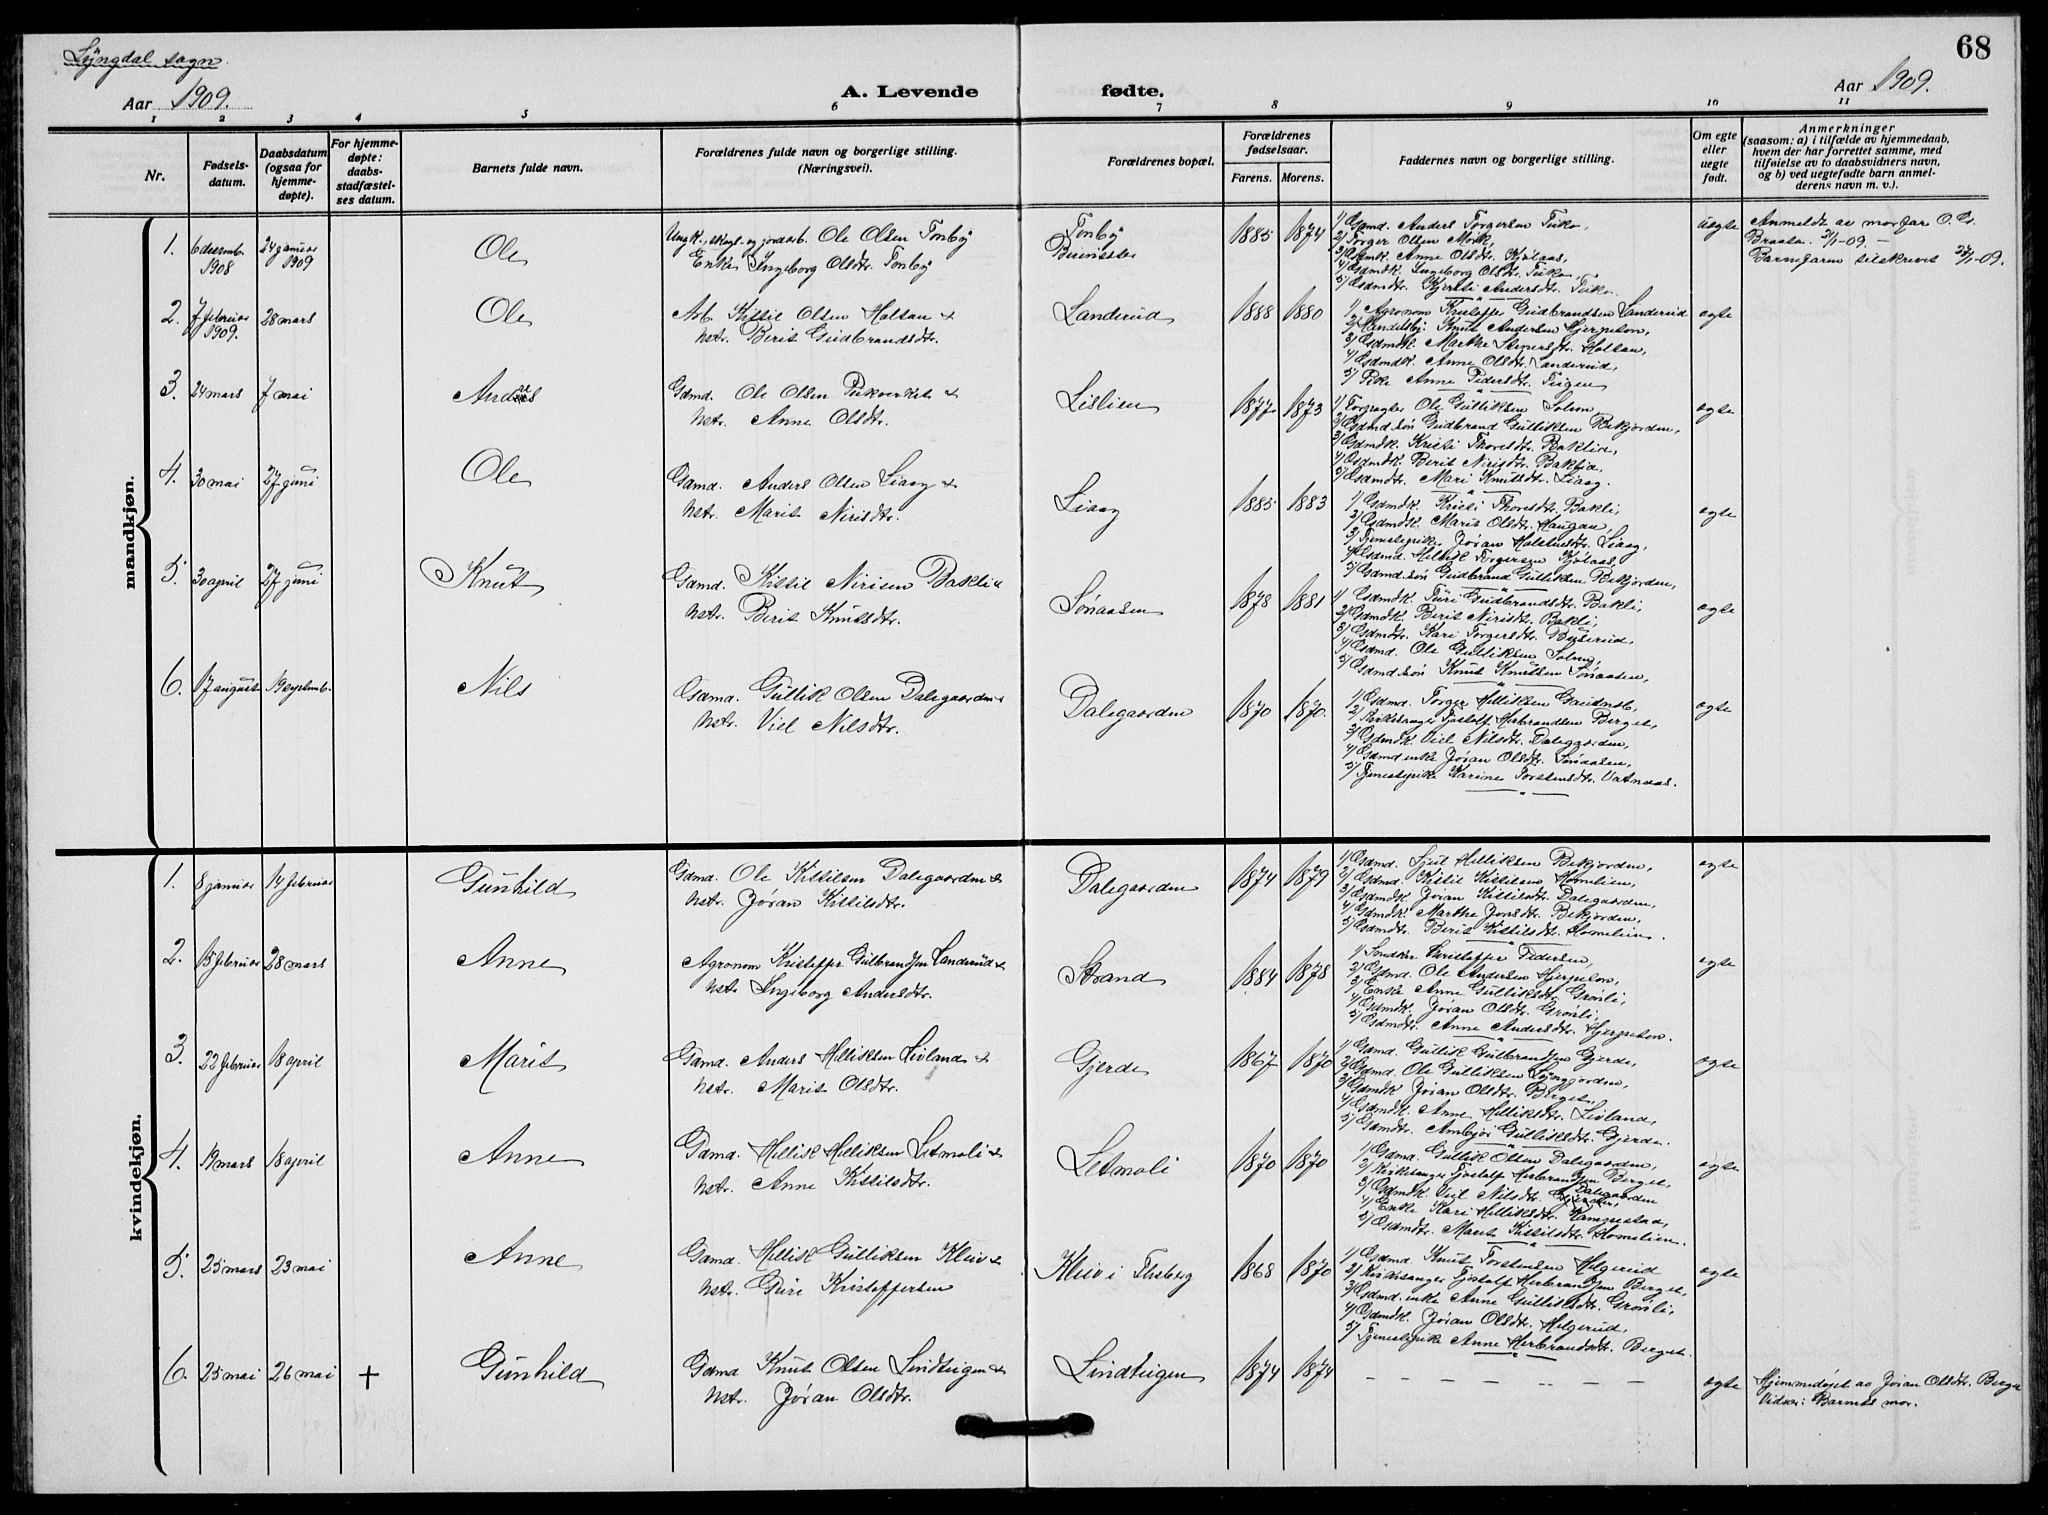 Lyngdal sogn.
68
Aar 1909.
A. Levende fødte.
Aar 1909.
1 2 3 4 5 6 7 8 9 10 11
Nr.
Fødsels-
datum.
Daabsdatum
(ogsaa for
hjemme-
døpte).
For hjemme-
døpte:
daabs-
stadfæstel-
ses datum.
Barnets fulde navn.
Forældrenes fulde navn og borgerlige stilling.
(Næringsvei).
Forældrenes bopæl.
Forældrenes
fødselsaar.
Farens. Morens.
Faddernes navn og borgerlige stilling.
Om egte
eller
uegte
født.
Anmerkninger
(saasom: a) i tilfælde av hjemmedaab,
hvem der har forrettet samme, med
tilføielse av to daabsvidners navn,
og b) ved uegtefødte barn anmel-
derens navn m. v.).
mandkjøn.
1. 6 desemb. 1908 24 januar 1909 Ole
Ungk., skogs- og jordarb. Ole Olsen Tonby
Enke Ingeborg Olsdtr. Tonby
Tonby
1885 1874
1/ Gdmd. Anders Torgersen
2/ Torger Olsen Mørk,
3/ Gdmdk. Anne Olsdtr. Kjølaas,
4/ Gdmdk. Ingeborg Olsdtr.
5/ Gdmdtr. Kjersti Andersdtr.
uegte
Anmeldt av morfar O. Braata 21/1-09. —
Barnefaren tilskrevet 22/1-09.
2. 7 februar 1909. 28 mars Ole
Arb. Kittil Olsen Holtan &
hstr. Berit Gudbrandsdtr.
Landerud
1888 1880
1/ Agronom Kristoffer Gudbrandsen Landerud
2/ Handelsbtj. Knut Andersen Hjerpeton,
3/ Gdmdk. Marthe Steinersdtr. Holtan,
4/ Gdmdk. Anne Olsdtr. Landerud,
5/ Pike Anne Pedersdtr. Teigen
egte
3. 24 mars 7 mai Anders
Gdmd. Ole Olsen Pukverket &
hstr. Anne Olsdtr.
Lislien
1877 1873
1/ Forpagter Ole Gulliksen Solum
2/ Gdmd.søn Gudbrand Gulliksen Bekjorden,
3/ Gdmdk. Kristi Thoresdtr. Baklia,
4/ Gdmdk. Berit Nirisdtr. Baklia,
5/ Gdmdtr. Mari Knutsdtr. Liaag.
egte
4. 30 mai 27 juni Ole
Gdmd. Anders Olsen Liaag &
hstr. Marit Nirisdtr.
Liaag
1885 1883
1/ Gdmdk. Kristi Thoresdtr. Bakli,
2/ Gdmdk. Marit Olsdtr. Haugan,
3/ Tjenestepike Jøran Halstensdtr. Liaag,
4/ Gdmd. Hellik Torgersen Kjølaas,
5/ Gdmd.søn Gudbrand Gulliksen Bekjorden,
egte
5. 30 april 27 juni Knut
Gdmd. Kittil Nirisen Bakli &
hstr. Berit Knutsdtr.
Sønaasen
1878 1881
1/ Gdmdk. Turi Gudbrandsdtr. Bakli,
2/ Gdmdk. Berit Nirisdtr. Bakli,
3/ Gdmdtr. Kari Torgersdtr. Buterud,
4/ Gdmd. Ole Gulliksen Solum,
5/ Gdmd.søn Knut Knutsen Sønaasen,
egte
6. 17 august 19 septemb. Nils
Gdmd. Gullik Olsen Dalegaarden &
hstr. Viel Nilsdtr.
Dalegaarden
1870 1870.
1/ Gdmd. Torger Helliksen
2/ Kirkesanger Tjostolf Herbrandsen Berget,
3/ Gdmdk. Viel Nilsdtr. Dalegaarden,
4/ Gdmd.enke Jøran Olsdtr. Sønaasen,
5/ Tjenestepike Karine Torstensdtr. Vatnaas.
egte
kvindekjøn.
1. 8 januar 14 februar Gunhild
Gdmd. Ole Kittilsen Dalegaarden &
hstr. Jøran Kittilsdtr.
Dalegaarden
1874 1879
1/ Gdmd. Sjul Helliksen Bekjorden,
2/ Gdmd. Kittil Kittilsen Homelien,
3/ Gdmdk. Jøran Kittilsdtr. Dalegaarden,
4/ Gdmdk. Marthe Jonsdtr. Bekjorden,
5/ Gdmdtr. Berit Kittilsdtr. Homelien.
egte
2. 15 februar 28 mars Anne
Agronom Kristoffer Gulbrandsen Landerud &
hstr. Ingeborg Andersdtr.
Strand
1884 1878
1/ Snedker Kristoffer Pedersen,
2/ Gdmd. Ole Andersen Hjerpeton,
3/ Enke Anne Gulliksdtr. Grønli,
4/ Gdmdk. Jøran Olsdtr. Grønli,
5/ Gdmdtr. Anne Andersdtr. Hjerpeton.
egte
3. 22 februar 18 april Marit
Gdmd. Anders Helliksen Livland &
hstr. Marit Olsdtr.
Gjerde
1867 1870
1/ Gdmd. Gullik Gulbrandsen Gjerde,
2/ Gdmd. Ole Gulliksen Lyngjorden,
3/ Gdmdk Jøran Olsdtr. Berget,
4/ Gdmdk. Anne Helliksdtr. Livland,
5/ Gdmdtr. Ambjør Gulliksdtr. Gjerde.
egte
4. 19 mars 18 april Anne
Gdmd. Hellik Helliksen Letmoli &
hstr. Anne Kittilsdtr.
Letmoli
1870 1870
1/ Gdmd. Gullik Olsen Dalegaarden,
2/ Kirkesanger Tjostolf Herbrandsen Berget,
3/ Gdmdk Viel Nilsdtr. Dalegaarden
4/ Enke Kari Helliksdtr. Kampestad,
5/ Gdmdtr. Marit Kittilsdtr. Homelien.
egte
5. 25 mars 23 mai Anne
Gdmd. Hellik Gulliksen Kleiv &
hstr. Guri Kristoffersen
Kleiv i Flesberg
1868 1870
1/ Gdmd Knut Torstensen Helgerud
2/ Kirkesanger Tjostolf Herbrandsen Berget,
3/ Gdmd.enke Anne Gulliksdtr. Grønli,
4/ Gdmdk. Jøran Olsdtr. Helgerud,
5/ Tjenestepike Anne Herbrandsdtr. Berget.
egte
6. 25 mai 26 mai + Gunhild
Gdmd Knut Olsen Lindteigen &
hstr. Jøran Olsdtr.
Lindteigen
1874 1874
– – – – – – –
egte
Hjemmedøpt av Jøran Olsdtr. Berget
Vidner: Barnets mor.